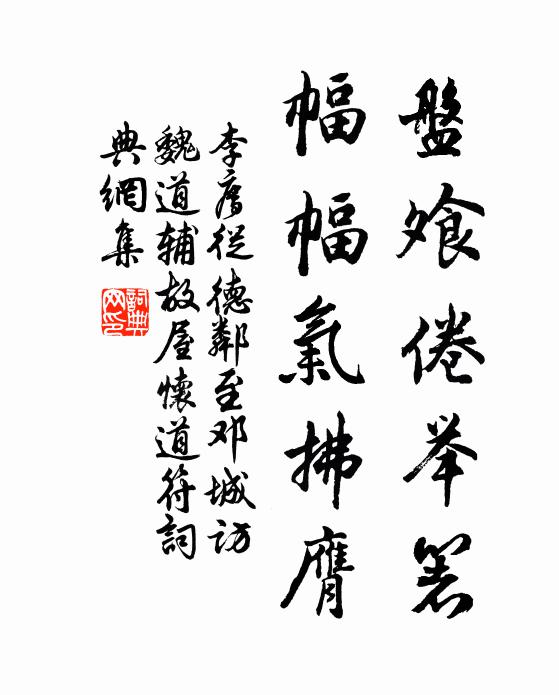 盤飧倦举箸
幅幅氣拂膺
李廌從德鄰至邓城訪
魏道輔故屋懷道符詞
典網集
詞典
网印